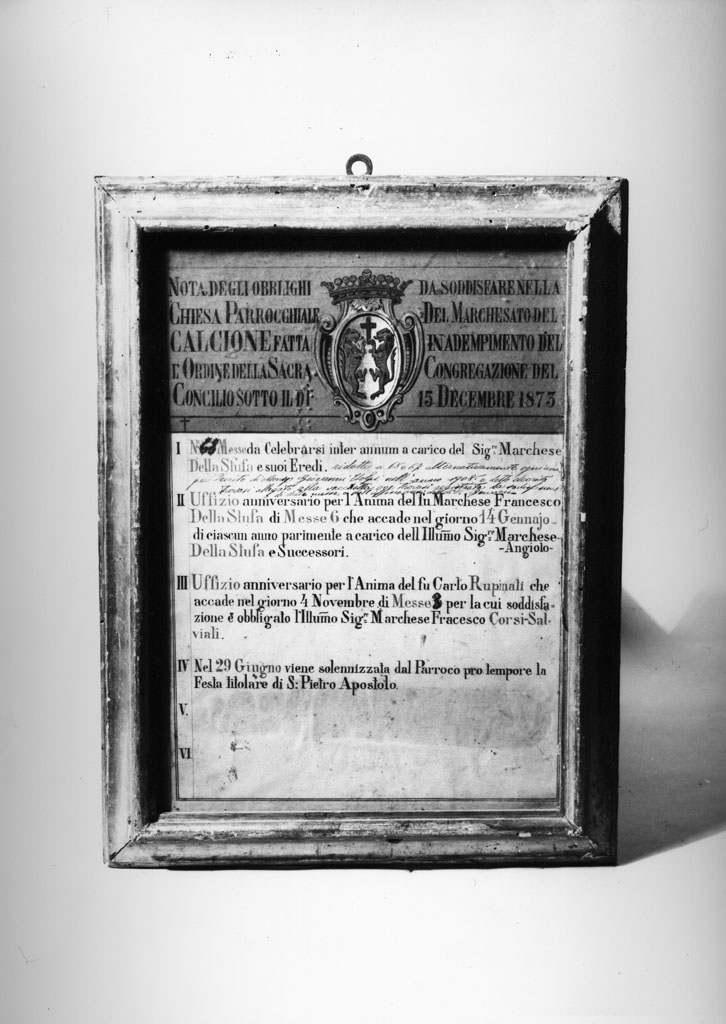 NOTA DEGLI OBBLIGHI DA SODDISFARE NELLA
CHIESA PARROCCHIALE DEL MARCHESATO DEL
CALCIONE FATTA IN ADEMPIMENTO DEL
L'ORDINE DELLA SACRA CONGREGAZIONE DEL
CONCILIO SOTTO IL DI 15 DECEMBRE 1873
I N Messe da Celebrarsi inter annum a carico del Sig.re Marchese
Della Stufa e suoi Eredi. ridotte a 68 e 67 alternativamente ogni anno
per Decreto di Mons. Giovanni Volpi nell'anno 1908 e detto decreto
II Uffizio anniversario per l'Anima del fu Marchese Francesco
Della Stufa di Messe 6 che accade nel giorno 14 Gennajo
di ciascun anno parimente a carico dell Illumo Sig.re Marchese
Della Stufa e Successori. -Angiolo-
III Uffizio anniversario per l'Anima del fu Carlo Rupinati che
accade nel giorno 4 Novembre di Messe 3 per la cui soddisfa-
zione è obbligato l'Illumo Sig.re Marchese Fracesco Corsi-Sal-
viati.
IV Nel 29 Giugno viene solennizzata dal Parroco pro tempore la
Festa titolare di S: Pietro Apostolo.
V.
VI